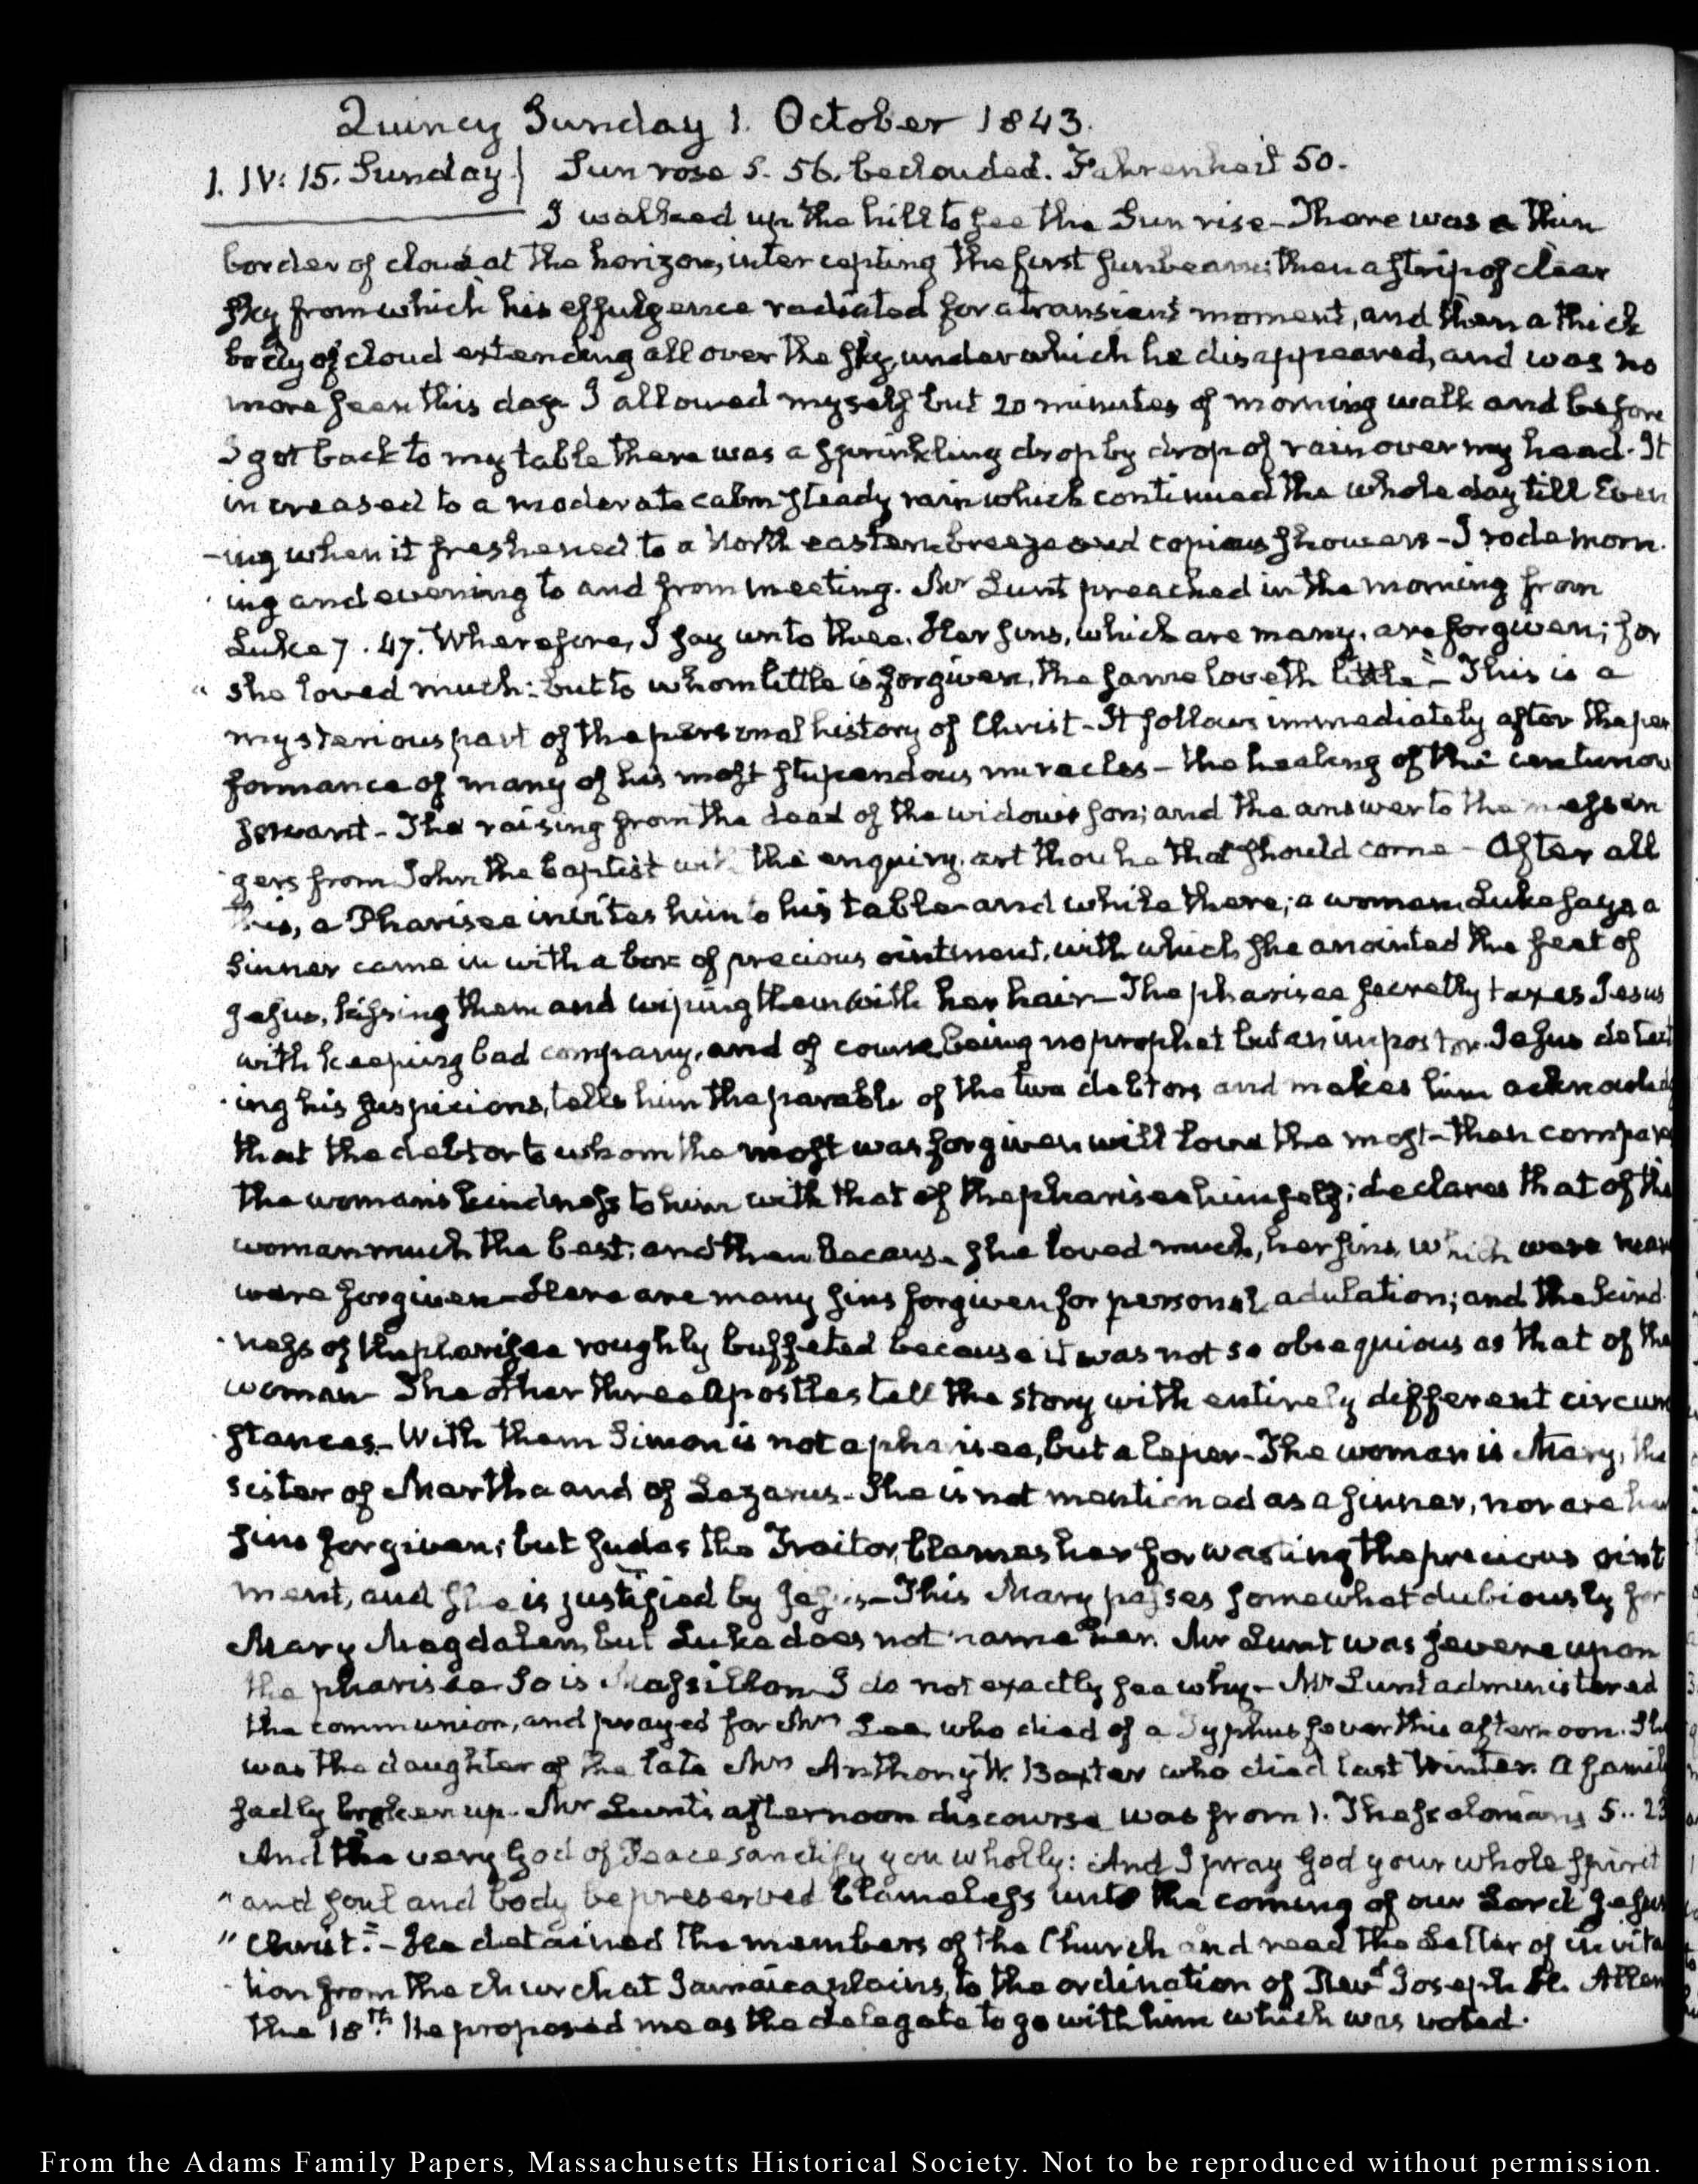 Quincy Sunday 1. October 1843.
1. IV: 15. Sunday} Sun rose 5. 56. beclouded. Fahrenheit 50.
I walked up the hill to see the Sun rise - There was a thin
border of cloud at the horizon, intercepting the first sunbeams; then a strip of clear
sky from which his effulgence radiated for a transient moment, and then a thick
body of cloud extending all over the sky, under which he disappeared, and was no
more seen this day. I allowed myself but 20 minutes of morning walk and before
I got back to my table there was a sprinkling drop by drop of rain over my head. It
increased to a moderate calm steady rain which continued the whole day till Even
-ing when it freshened to a North eastern breeze and copious showers - I rode morn-
ing and evening to and from meeting. Mr Lunt preached in the morning from
Luke 7. 47. Wherefore, I say unto thee. Her sins, which are many, are forgiven; for
" she loved much: but to whom little is forgiven, the same loveth little" - This is a
mysterious part of the personal history of Christ - It follows immediately after the per
formance of many of his most stupendous miracles - the healing of the centurion
servant - The raising from the dead of the widow's son; and the answer to the messen
gers from John the Baptist with the enquiry, art thou he that should come - After all
this, a Pharisee invites him to his table and while there; a woman Luke says a
sinner came in with a box of precious ointment, with which she anointed the feet of
Jesus, kissing them and wiping them with her hair - The pharisee secretly taxes Jesus
with keeping bad company, and of course being no prophet but an impostor. Jesus detect
ing his suspicions, tells him the parable of the two debtors and makes him acknowledg
that the debtor to whom the most was forgiven will love the most - then compares
the woman's kindness to him with that of the pharisee himself; declares that of the
woman much the best; and then because she loved much, her sins, which were many
were forgiven - Here are many sins forgiven for personal adulation; and the kind
ness of the pharisee roughly buffeted because it was not so obsequious as that of the
woman - The other three Apostles tell the story with entirely different circum
stances - With them Simon is not a pharisee, but a leper - The woman is Mary, the
sister of Martha and of Lazarus - She is not mentioned as a sinner, nor are her
sins forgiven; but Judas the Traitor, blames her for wasting the precious oint
ment, and she is justified by Jesus - This Mary passes somewhat dubiously for
Mary Magdalen, but Luke does not name her. Mr Lunt was severe upon
the pharisee. So is Massillon. I do not exactly see why - Mr Lunt administered
the communion, and prayed for Mrs Lee who died of a Typhus fever this afternoon. She
was the daughter of the late Mrs Anthony W. Baxter who died last Winter. A family
sadly broken up. Mr Lunt's afternoon discourse was from 1. Thessalonians 5.. 23
And the very God of Peace sanctify you wholly: And I pray God your whole spirit
" and soul and body be preserved blameless unto the coming of our Lord Jesus
" Christ." - He detained the members of the Church and read the Letter of invita
tion from the church at Jamaica plains, to the ordination of Revd Joseph H. Allen
the 18th. He proposed me as the delegate to go with him which was voted.
From the Adams Family Papers, Massachusetts Historical Society. Not to be reproduced without permission.